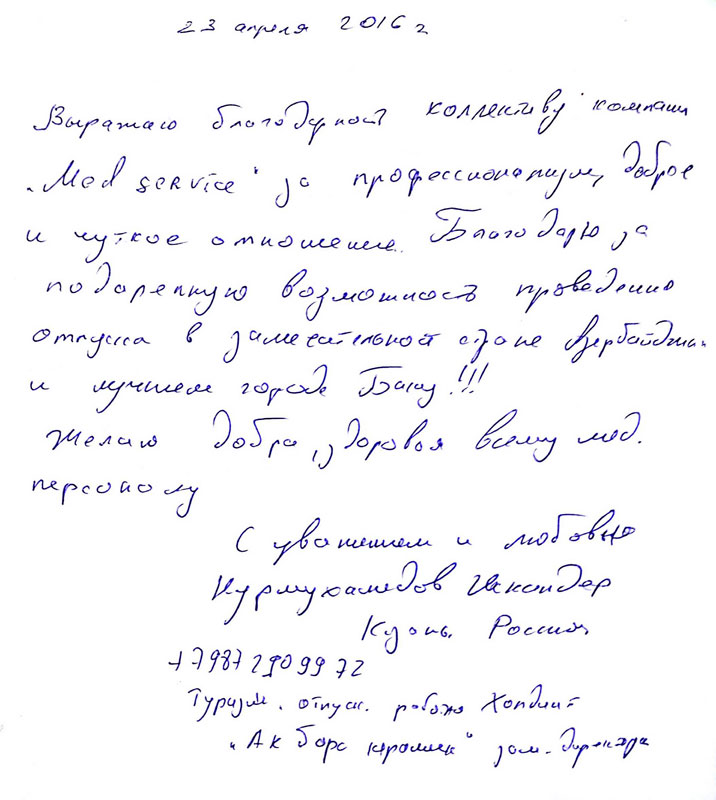 23 апреля 2016 г
Выражаю благодарность коллективу компании
„Med service“ за профессионализм, доброе
и чуткое отношение. Благодарю за
подаренную возможность проведению
отпуска в замечательной стране Азербайджан
и лучшем городе Баку!!!
Желаю добра, здоровья всему мед.
персоналу
С уважением и любовью
Нурмухамедов Искандер
Казань. Россия
+7987 290 99 72
Туризм. отпуск. работа Холдинг
„Ак барс керамик“ зам. директора